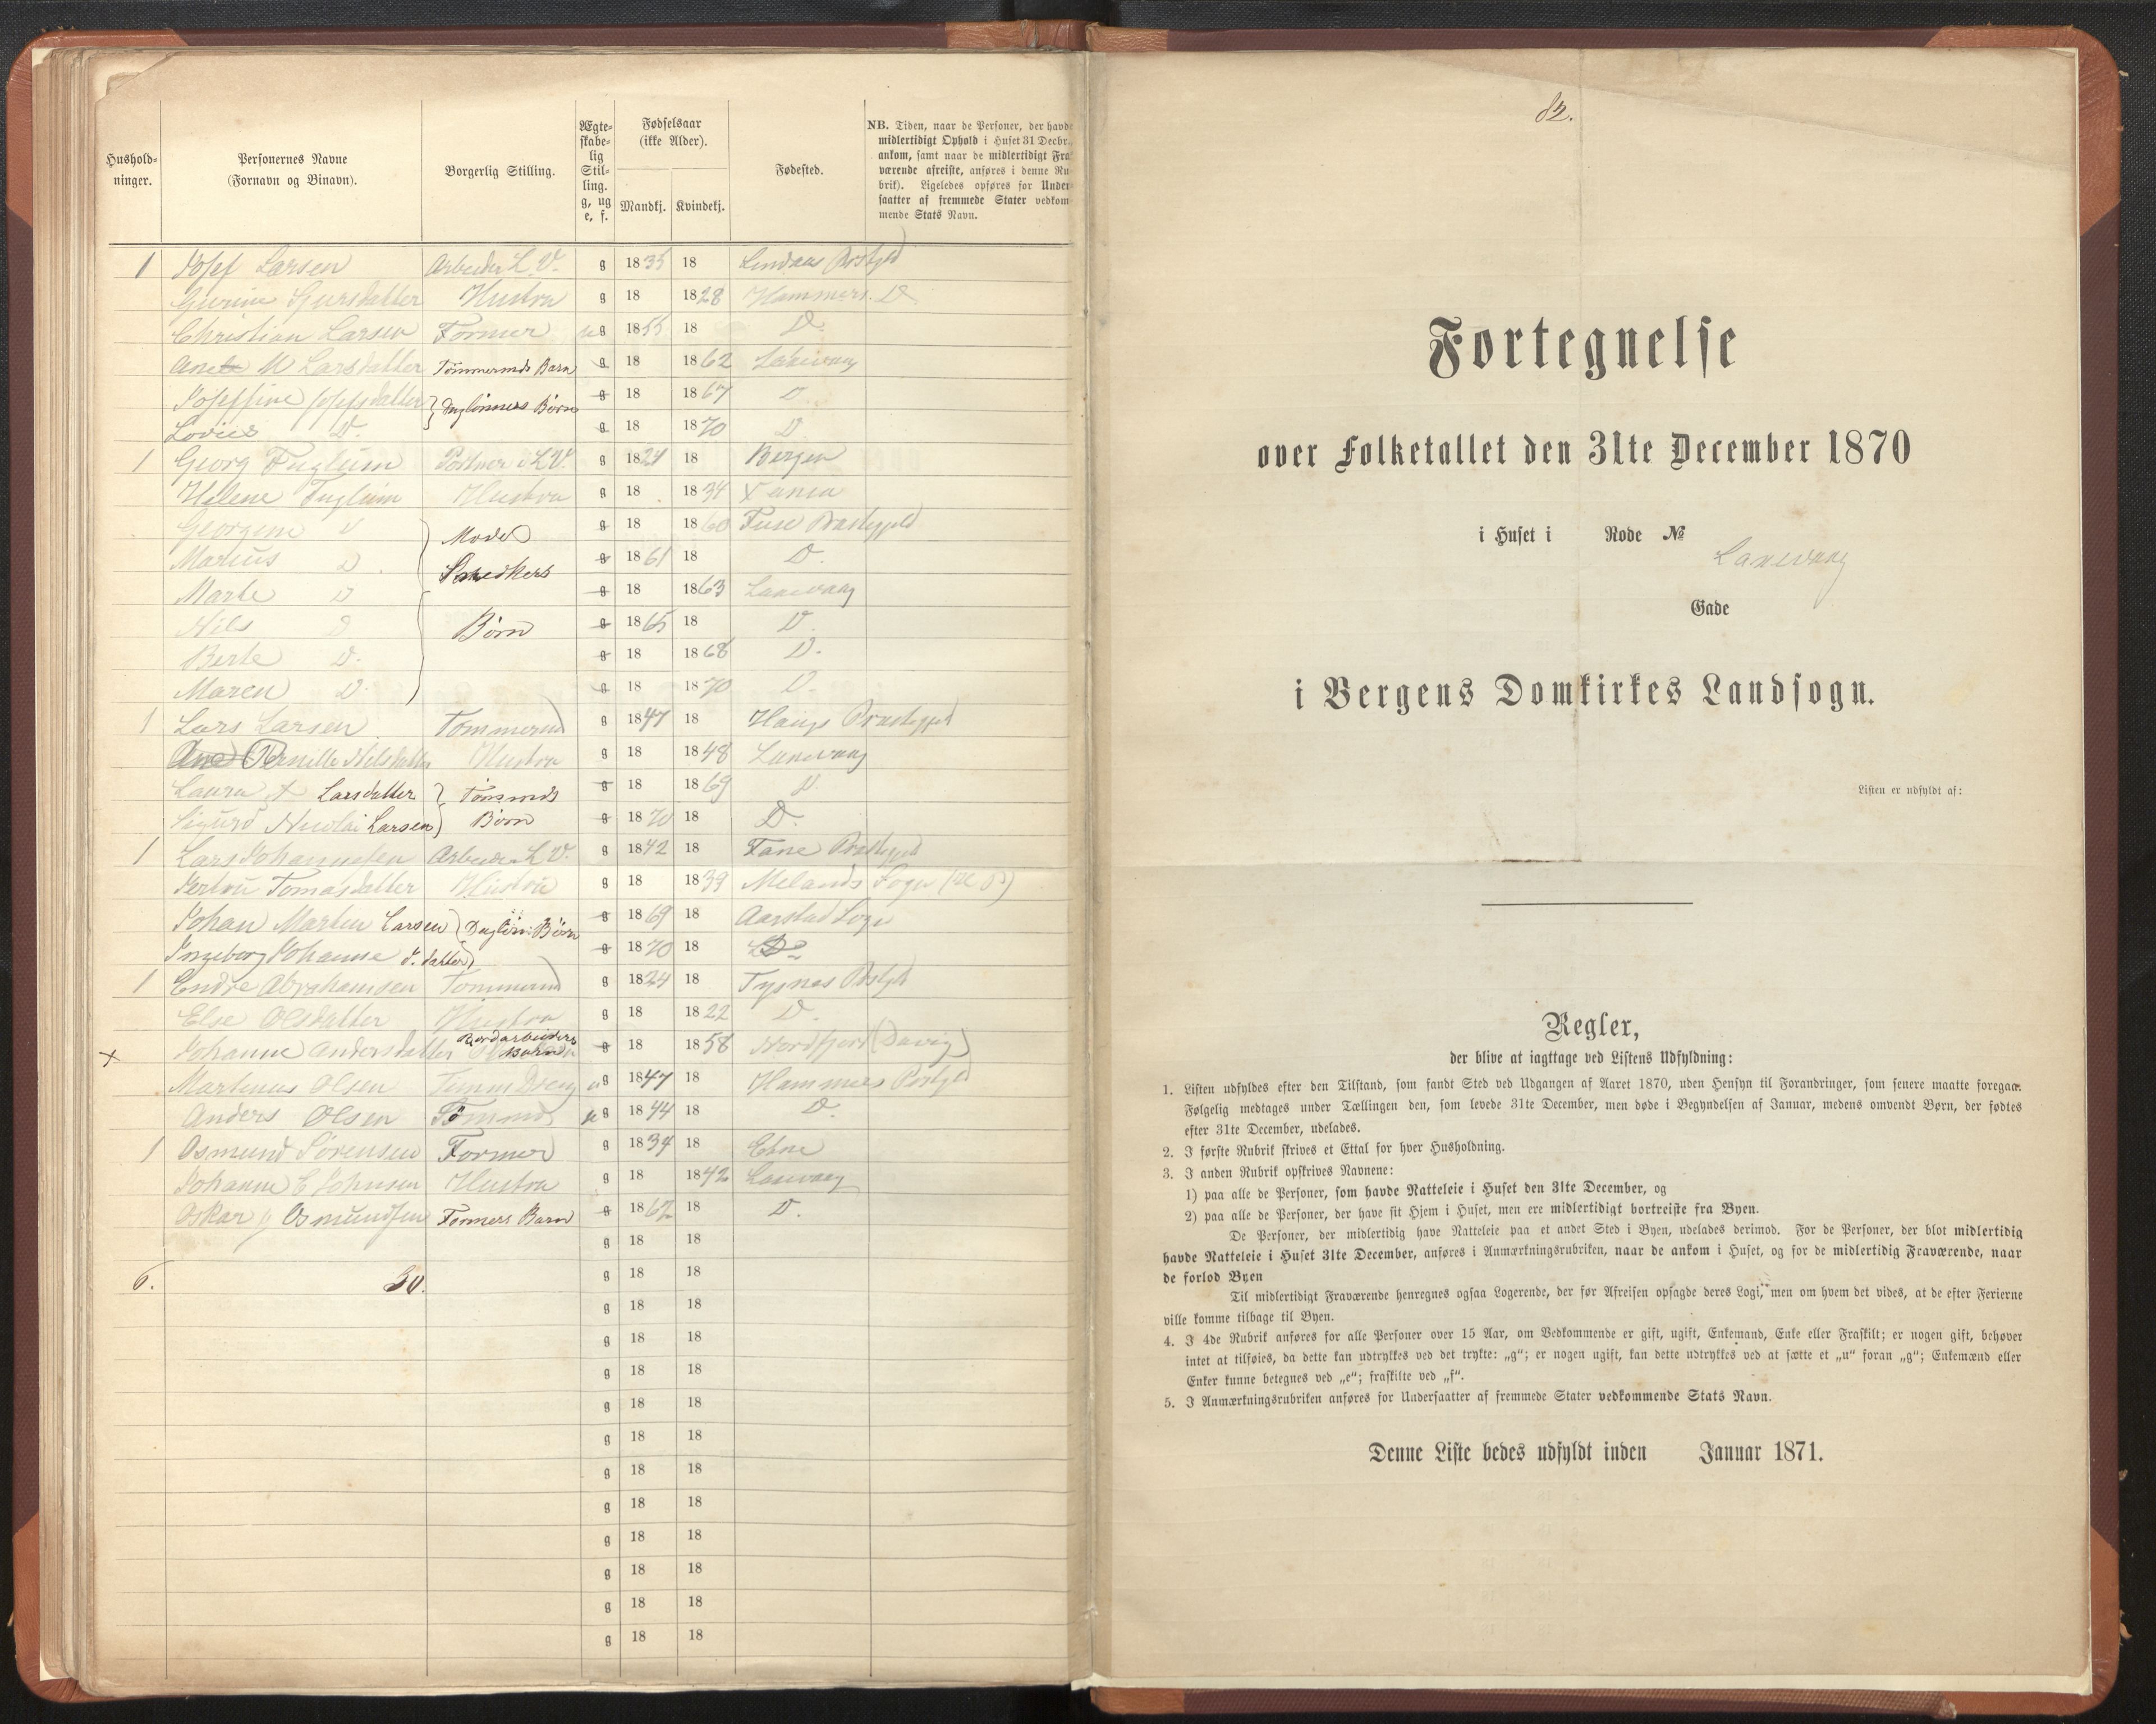 Hushold-
ninger.
Personernes Navne
(Fornavn og Binavn).
Borgerlig Stilling.
Ægte-
skabe-
lig
Stil-
ling.
g, ug
e, f.
Fødselsaar
(ikke Alder).
Mandkj. Kvindekj.
Fødested.
NB. Tiden, naar de Personer, der havde
midlertidigt Ophold i Huset 31 Decbr.,
ankom, samt naar de midlertidigt Fra-
værende afreiste, anføres i denne Ru-
brik). Ligeledes opføres for Under-
saatter af fremmede Stater vedkom-
mende Stats Navn.
1 Josef Larsen Arbeider L.V. g 1835 18 Lindaas Prstgld
Gurine Gjursdatter Hustru g 18 1828 Hammers D
Christian Larsen Former ug 1855 18 D.
Ane M Larsdatter Tømmermds Barn g 18 1862 Laxevaag
Joseffine Josefsdatter Daglønners Børn g 18 1867 D
Lovise D. g 18 1870 D
1 Georg Fuglum Portner L.V. g 1824 18 Bergen
Helene Fuglum Hustru g 18 1834
Georgine D g 18 1860 Fuse Præstegjeld
Marius D Model g 1861 18 D.
Marte D Snedkers g 18 1863 Laxevaag
Nils D Børn g 1865 18 D.
Berte D. g 18 1868 D.
Maren D. g 18 1870 D.
1 Lars Larsen Tømmermd g 1847 18 Haugs Præstegjeld
Ane Pernille Nilsdatter Hustru g 18 1848 Laxevaag
Laura A Larsdatter Tømrmds g 18 1869 D
Sigurd Nicolai Larsen Børn g 1870 18 D.
1 Lars Johannesen Arbeider L.V. g 1842 18 Fane Prstegjeld
Jertru Tomasdatter Hustru g 18 1839 Melands Sogn
Johan Martin Larsen Dagløn: Børn g 1869 18 Aarstad Sogn
Ingeborg Johanne L.datter g 1870 18 Do
1 Endre Abrahamsen Tømmermd g 1824 18 Tysnes Prstgld
Else Olsdatter Hustru g 18 1822 D.
x Johanne Andersdatter Bordarbeiders Barn g 18 1858 Nordfjord (Davig)
Martinus Olsen Tømm Dreng ug 1847 18 Hammers Prstgld
Anders Olsen Tømmd ug 1844 18 D.
1 Osmund Sørensen Former g 1834 18 Etne
Johanne E Johnsen Hustru g 18 1842 Laxevaag
Oskar J Osmundsen Formers Barn g 1862 18 D.
g 18 18
6. 30. g 18 18
g 18 18
g 18 18
g 18 18
g 18 18
g 18 18
g 18 18
g 18 18
g 18 18
g 18 18
g 18 18
g 18 18
82.
Fortegnelse
over Folketallet den 31te December 1870
i Huset i Rode №
Laxevaag
Gade
i Bergens Domkirkes Landsogn.
Listen er udfyldt af:
Regler,
der blive at iagttage ved Listens Udfyldning:
1. Listen udfyldes efter den Tilstand, som fandt Sted ved Udgangen af Aaret 1870, uden Hensyn til Forandringer, som senere maatte foregaa.
Følgelig medtages under Tællingen den, som levede 31te December, men døde i Begyndelsen af Januar, medens omvendt Børn, der fødtes
efter 31te December, udelades.
2. I første Rubrik skrives et Ettal for hver Husholdning.
3. I anden Rubrik opskrives Navnene:
1) paa alle de Personer, som havde Natteleie i Huset den 31te December, og
2) paa alle de Personer, der have sit Hjem i Huset, men ere midlertidigt bortreiste fra Byen.
De Personer, der midlertidig have Natteleie paa et andet Sted i Byen, udelades derimod. For de Personer, der blot midlertidig
havde Natteleie i Huset 31te December, anføres i Anmærkningsrubriken, naar de ankom i Huset, og for de midlertidig Fraværende, naar
de forlod Byen
Til midlertidigt Fraværende henregnes ogsaa Logerende, der før Afreisen opsagde deres Logi, men om hvem det vides, at de efter Ferierne
ville komme tilbage til Byen.
4. I 4de Rubrik anføres for alle Personer over 15 Aar, om Vedkommende er gift, ugift, Enkemand, Enke eller Fraskilt; er nogen gift, behøver
intet at tilføies, da dette kan udtrykkes ved det trykte: „g“; er nogen ugift, kan dette udtrykkes ved at sætte et „u“ foran „g“; Enkemænd eller
Enker kunne betegnes ved „e“; fraskilte ved „f“.
5. I Anmærkningsrubriken anføres for Undersaatter af fremmede Stater vedkommende Stats Navn.
Denne Liste bedes udfyldt inden Januar 1871.